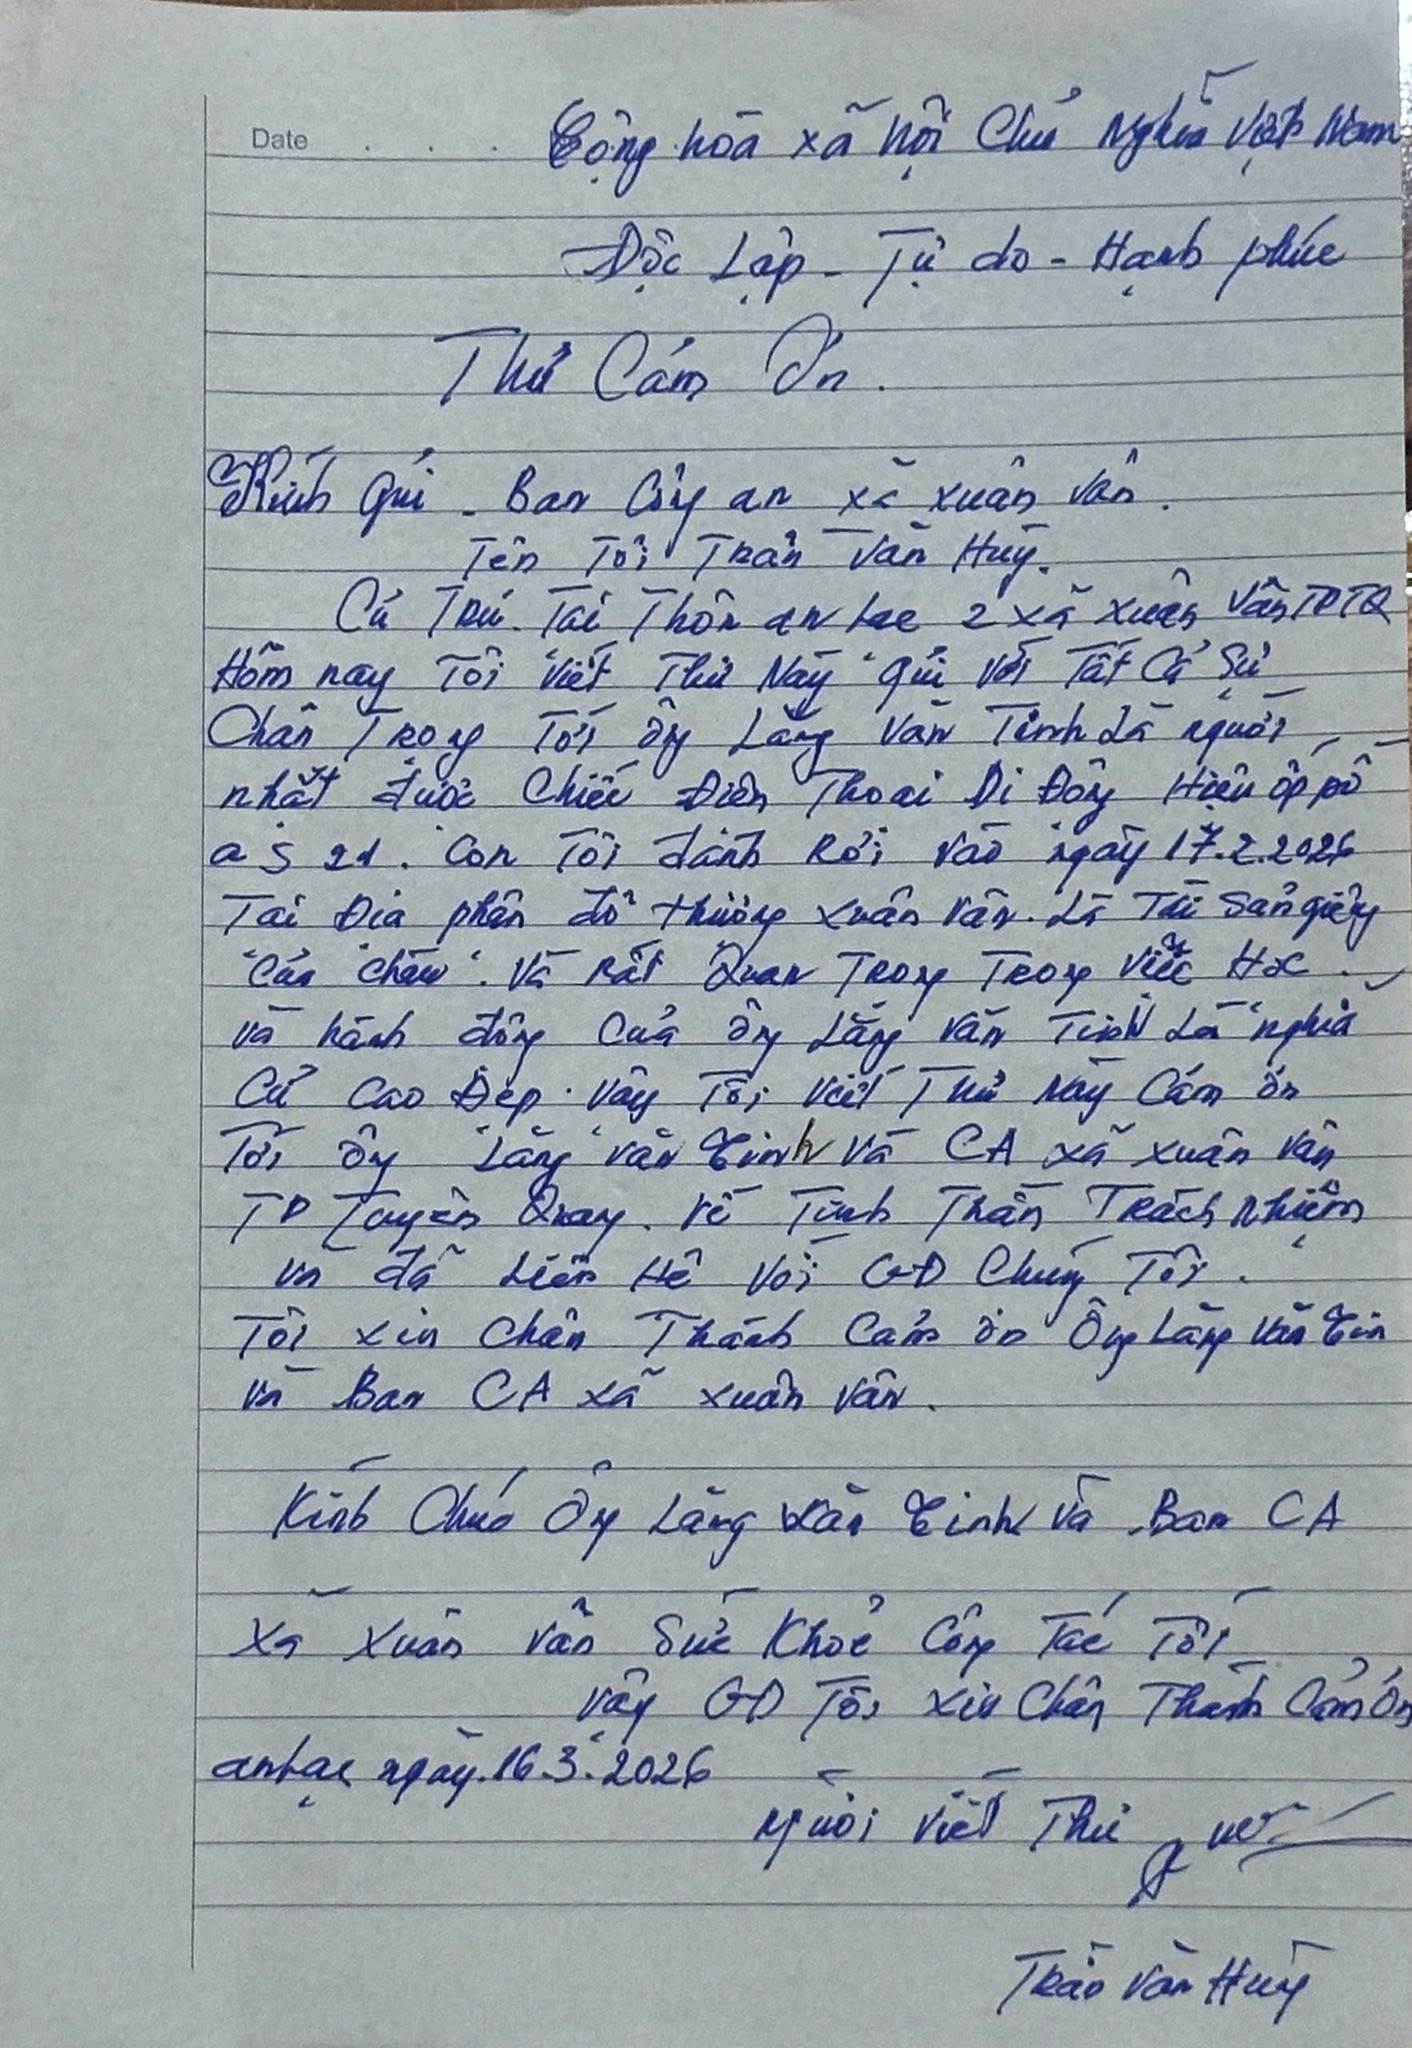 Date . . . Cộng hòa xã hội Chủ Nghĩa Việt Nam
Độc Lập - Tự do - Hạnh phúc
Thư Cám Ơn.
Kính Gửi - Ban Công an xã Xuân Vân.
Tên Tôi Trần Văn Huỳ.
Cư Trú Tại Thôn an Lạc 2 xã Xuân Vân TPTQ
Hôm nay Tôi Viết Thư Này Gửi Với Tất Cả Sự
Chân Trong Tới ông Lăng Văn Tình Là người
nhặt được Chiếc Điện Thoại Di Động Hiệu óppô
a 5 . Con Tôi đánh Rơi Vào ngày 17.2.2026
Tại Địa phận đô thượng Xuân Vân. Là Tài sản
Của cháu. Và Rất Quan Trong Trong Việc
và hành động Của ông Lăng Văn Tình Là nghĩa
Cử Cao Đẹp. Vậy Tôi Viết Thư Này Cám ơn
Tới ông Lăng Văn Tình Và CA xã Xuân Vân
TP Tuyên Quang. Về Tinh Thần Trách Nhiệm
và đã Liên Hệ Với GĐ Chúng Tôi.
Tôi xin Chân Thành Cảm ơn Ông Lăng Văn Tin
và Ban CA xã Xuân Vân.
Kính Chúc Ông Lăng Văn Tình Và Ban CA
Xã Xuân Vân Sức Khoẻ Công Tác Tốt
Vậy GĐ Tôi Xin Chân Thành Cảm Ơn
an Lạc ngày.16.3.2026
Người Viết Thư
Trần Văn Huỳ